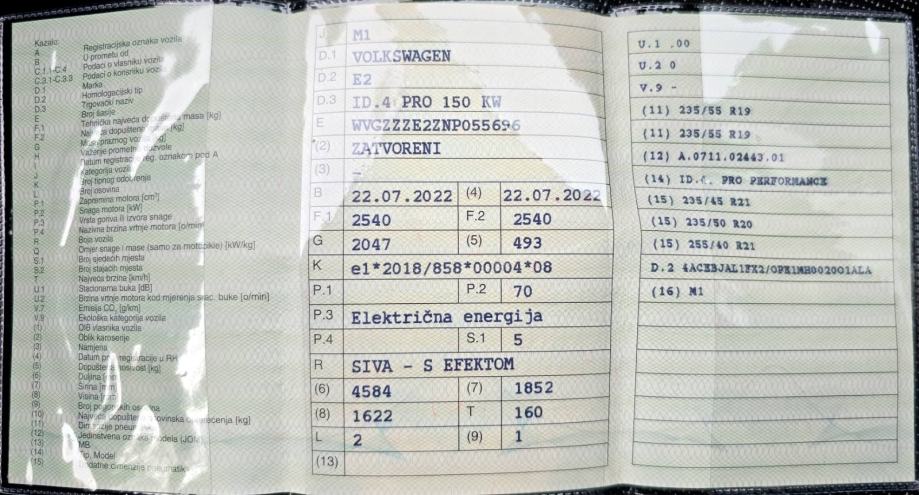 Kazalo:
A Registracijska oznaka vozila
B U prometu od
C.1.1-C.4 Podaci o vlasniku vozila
C.3.1-C.3.3 Podaci o korisniku vozila
D.1 Marka
D.2 Homologacijski tip
D.3 Trgovački naziv
E Broj šasije
F.1 Tehnička najveća masa [kg]
F.2 [kg]
G Masa praznog vozila
H Važenje prometne dozvole
I Datum A
J Kategorija vozila
K Broj tipnog odobrenja
L Broj osovina
P.1 Zapremina motora [cm³]
P.2 Snaga motora [kW]
P.3 Vrsta goriva ili izvora snage
P.4 Nazivna brzina vrtnje motora [o/min]
R Boja vozila
Q Omjer snage i mase (samo za motocikle) [kW/kg]
S.1 Broj sjedećih mjesta
S.2 Broj stajaćih mjesta
T Najveća brzina [km/h]
U.1 Stacionarna buka [dB]
U.2 Brzina vrtnje motora kod mjerenja stac. buke [o/min]
V.7 Emisija CO₂ [g/km]
V.9 Ekološka kategorija vozila
(1) OIB vlasnika vozila
(2) Oblik karoserije
(3) Namjena
(4) Datum registracije u RH
(5) Dopuštena nosivost [kg]
(6) Duljina
(7) Širina
(8) Visina
(9) Broj
(10) Najveća [kg]
(11)
(12) Jedinstvena modela
(13) MB
(14) Tip, Model
(15) Dodatne dimenzije pneumatika
J M1
D.1 VOLKSWAGEN
D.2 E2
D.3 ID.4 PRO 150 KW
E WVGZZZE2ZNP055696
(2) ZATVORENI
(3) –
B 22.07.2022 (4) 22.07.2022
F.1 2540 F.2 2540
G 2047 (5) 493
K e1*2018/858*00004*08
P.1 P.2 70
P.3 Električna energija
P.4 S.1 5
R SIVA - S EFEKTOM
(6) 4584 (7) 1852
(8) 1622 T 160
L 2 (9) 1
(13)
U.1 .00
U.2 0
V.9 -
(11) 235/55 R19
(11) 235/55 R19
(12) A.0711.02443.01
(14) ID.4. PRO PERFORMANCE
(15) 235/45 R21
(15) 235/50 R20
(15) 255/40 R21
D.2
(16) M1